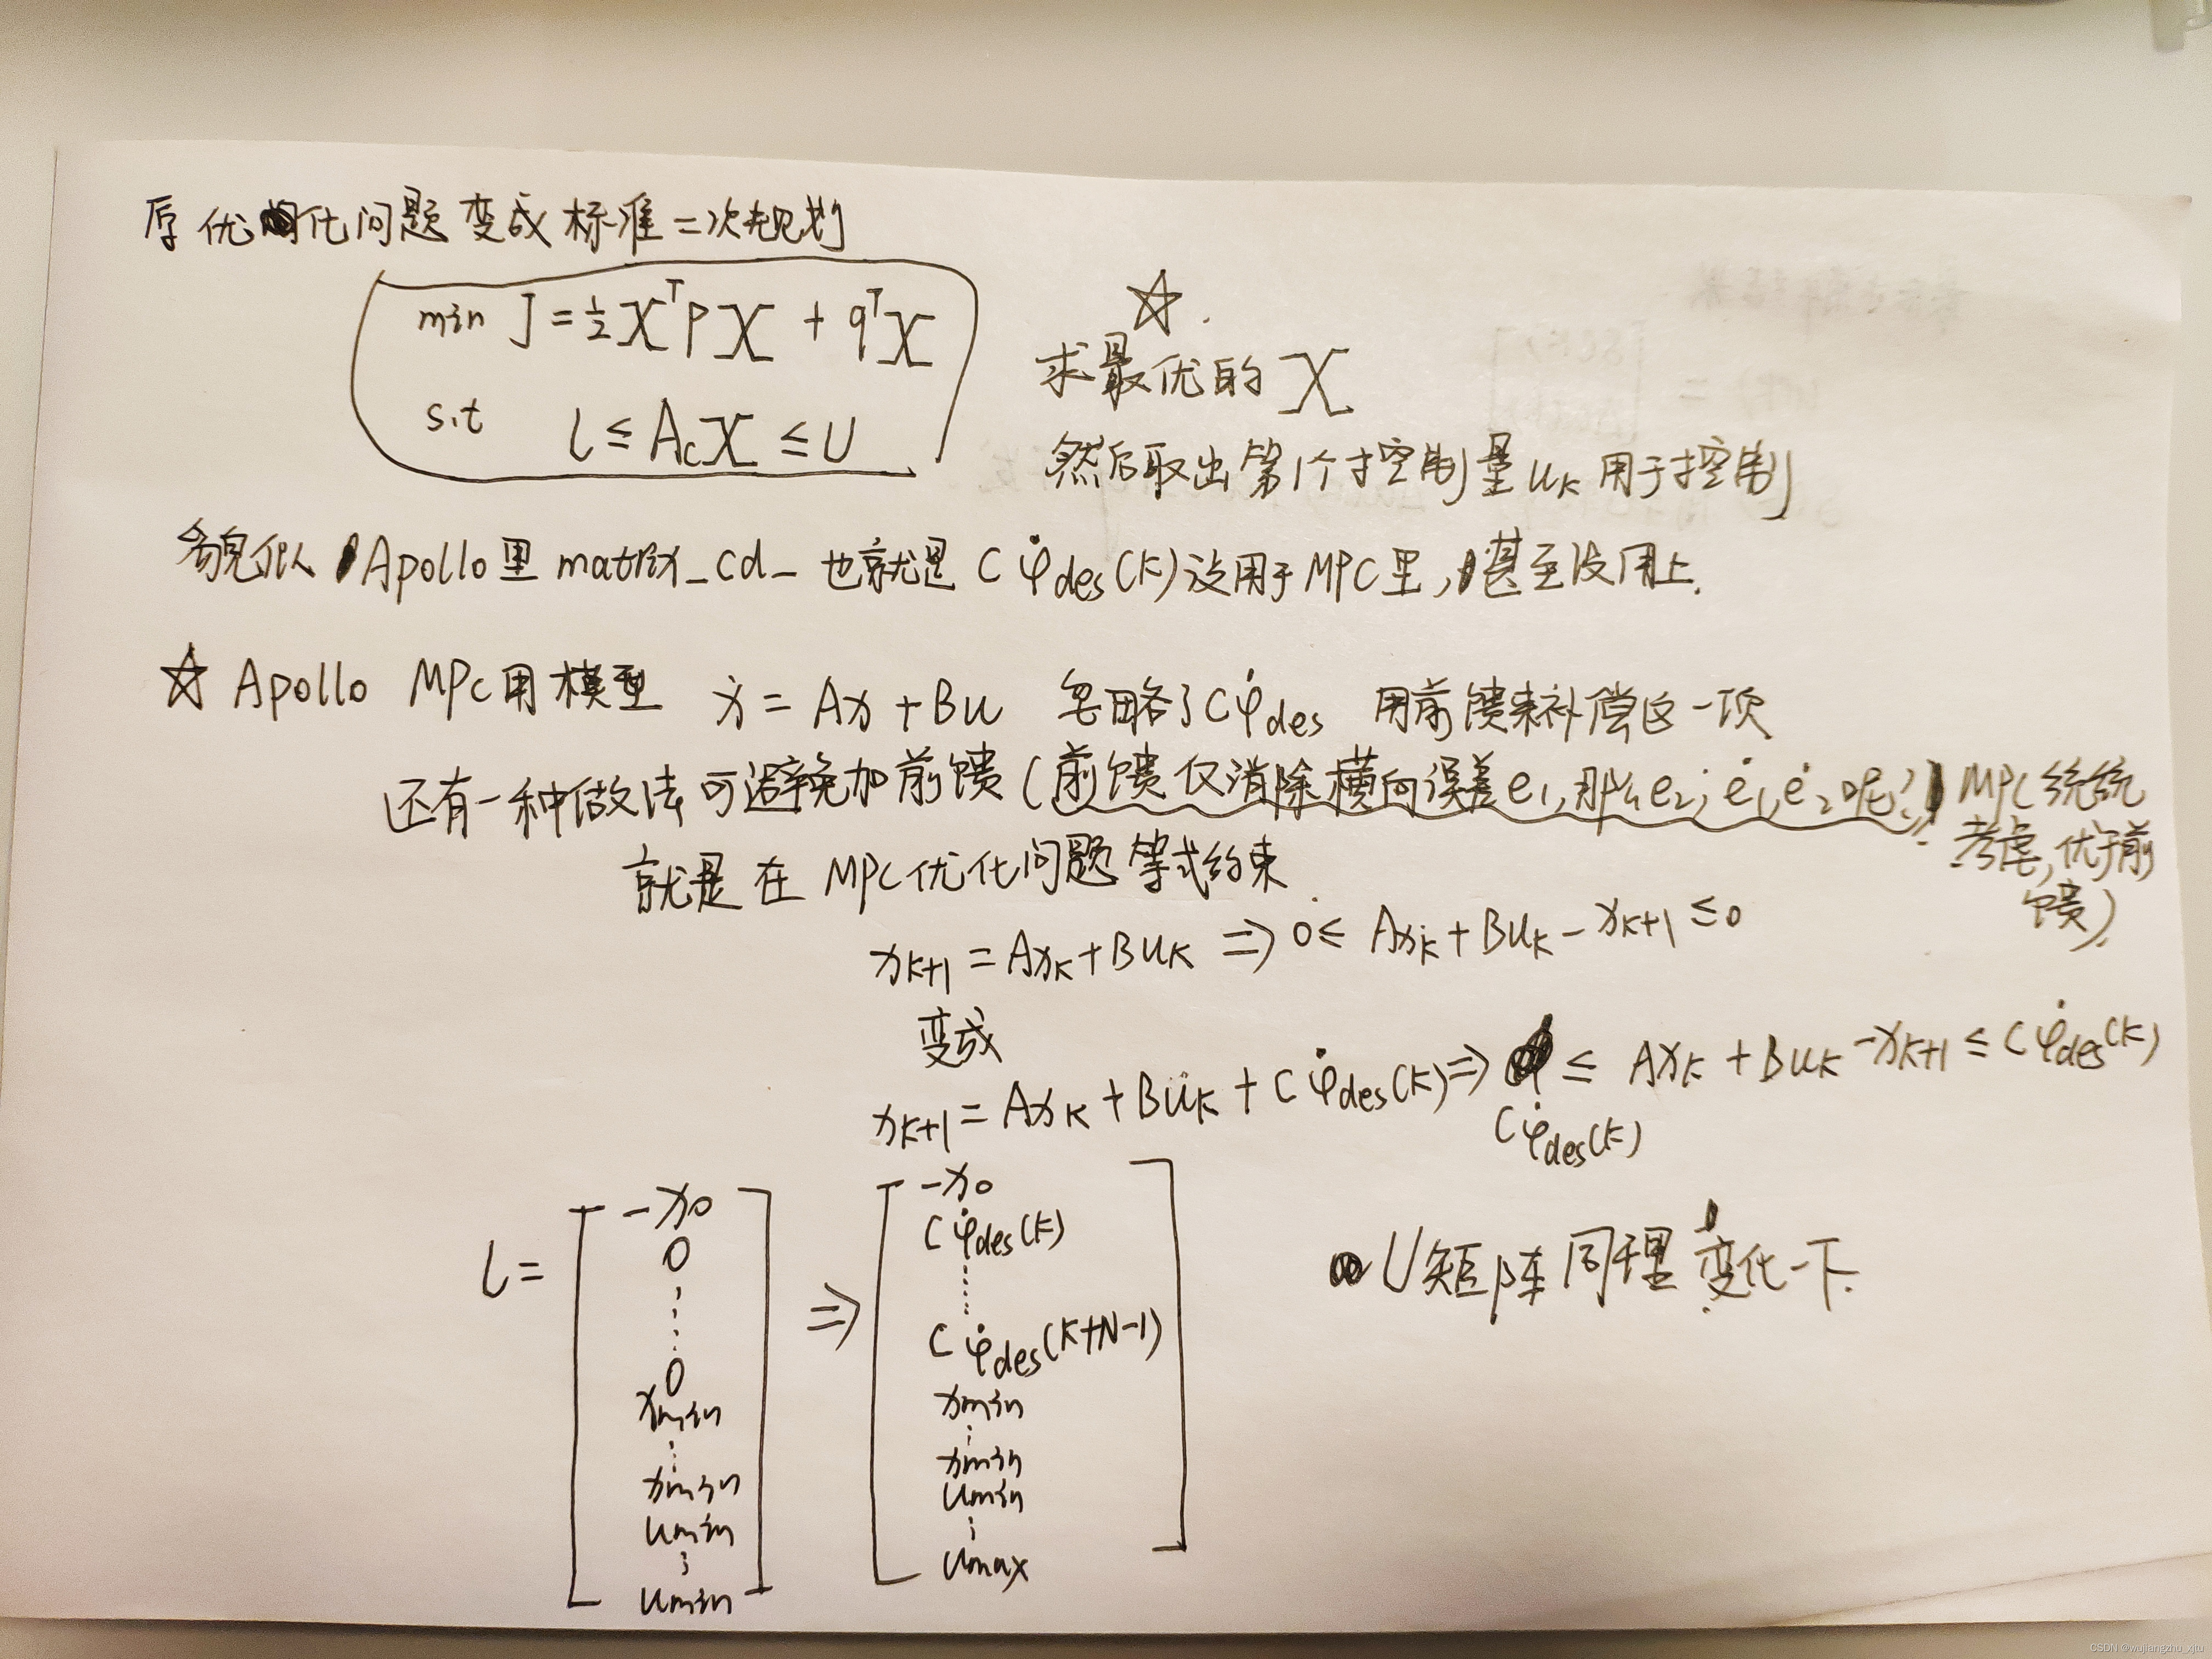 原优化问题变成标准二次规划
min J = ½χᵀPχ + qᵀχ
s.t l ≤ A_cχ ≤ U
☆.
求最优的χ
然后取出第1个控制量u_k用于控制
貌似Apollo里matrix_cd_也就是Cφ̇_des(k)没用于MPC里,甚至没用上.
☆ Apollo MPC用模型 ẋ = Ax + Bu 忽略了Cφ̇_des 用前馈来补偿这一项
还有一种做法可避免加前馈(前馈仅消除横向误差e₁,那么e₂,ė₁,ė₂呢?MPC统统
考虑,优于前
馈)
就是在MPC优化问题等式约束
x_{k+1} = Ax_k + Bu_k ⇒ 0 ≤ Ax_k + Bu_k - x_{k+1} ≤ 0
变成
x_{k+1} = Ax_k + Bu_k + Cφ̇_des(k) ⇒ ≤ Ax_k + Bu_k - x_{k+1} ≤ Cφ̇_des(k)
Cφ̇_des(k)
l = [ -x₀
0
⋮
0
xmin
⋮
xmin
umin
⋮
umin ]
⇒ [ -x₀
Cφ̇_des(k)
⋮
Cφ̇_des(k+N-1)
xmin
⋮
xmin
umin
⋮
umax ]
U矩阵同理变化一下.
CSDN @wujiangzhu_xjtu